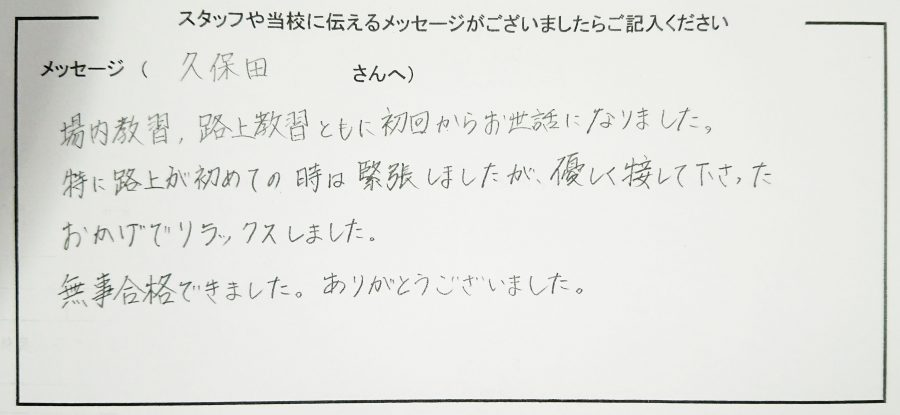 スタッフや当校に伝えるメッセージがございましたらご記入ください
メッセージ ( 久保田 さんへ)
場内教習,路上教習ともに初回からお世話になりました。
特に路上が初めての時は緊張しましたが、優しく接して下さった
おかげでリラックスしました。
無事合格できました。ありがとうございました。